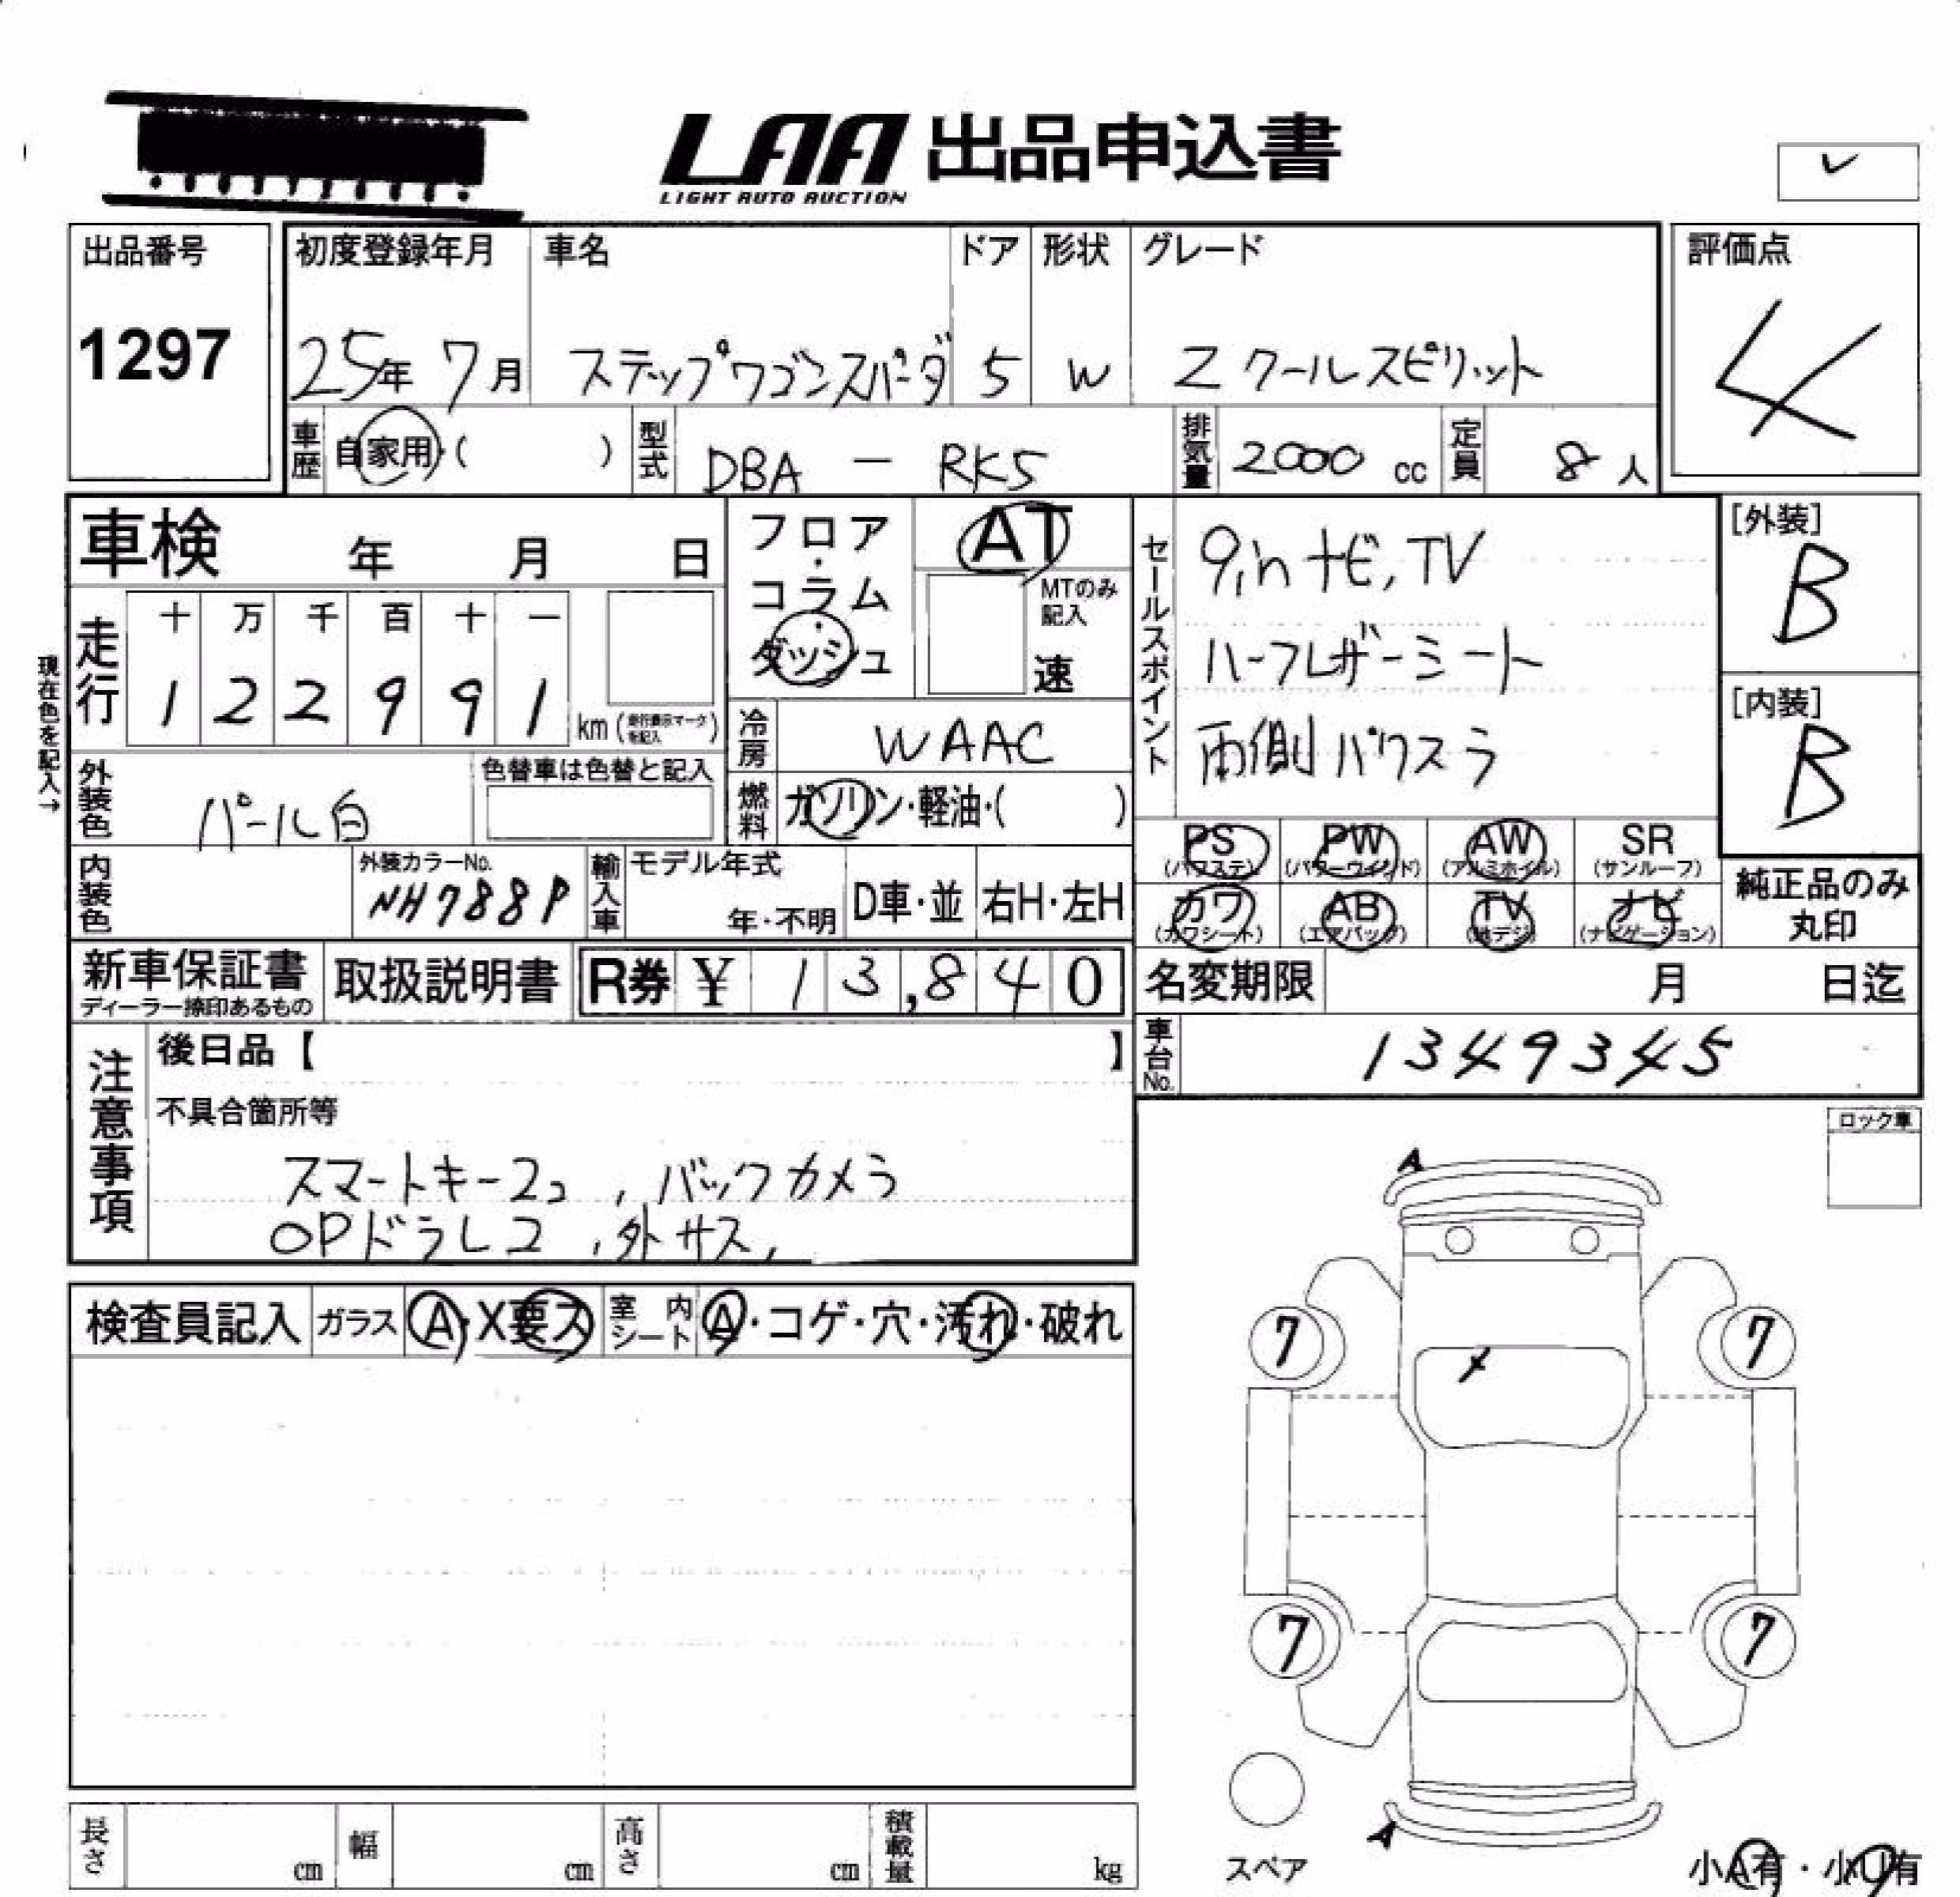 LAA 出品申込書
LIGHT AUTO AUCTION
出品番号 初度登録年月 車名 ドア 形状 グレード 評価点
1297 25年 7月 ステップワゴンスパーダ 5 W Z クールスピリット 4
車歴 自家用・( ) 型式 DBA - RK5 排気量 2000 cc 定員 8 人
車検 年 月 日
フロア・コラム・ダッシュ
AT
MTのみ記入
速
セールスポイント
9inナビ,TV
ハーフレザーシート
両側パワスラ
[外装]
B
[内装]
B
現在色を記入→
走行
十 万 千 百 十 一
1 2 2 9 9 1 km (走行表示マークを記入)
冷房 WAAC
外装色 パール白 色替車は色替と記入
燃料 ガソリン・軽油・( )
PS PW AW SR
(パワステ) (パワーウインド) (アルミホイル) (サンルーフ)
カワ AB TV ナビ
(カワシート) (エアバッグ) (地デジ) (ナビゲーション)
純正品のみ
丸印
内装色 外装カラーNo. NH788P 輸入車 モデル年式 年・不明 D車・並 右H・左H
新車保証書
ディーラー捺印あるもの
取扱説明書 R券 ¥ 13,840
名変期限 月 日迄
車台No. 1349345
注意事項
後日品【 】
不具合箇所等
スマートキー2コ,バックカメラ
OPドラレコ,外サス,
ロック車
A
検査員記入 ガラス A・X要ス 室内シート A・コゲ・穴・汚れ・破れ
7 7
X
7 7
A
スペア
小A有・小U有
長さ cm 幅 cm 高さ cm 積載量 kg